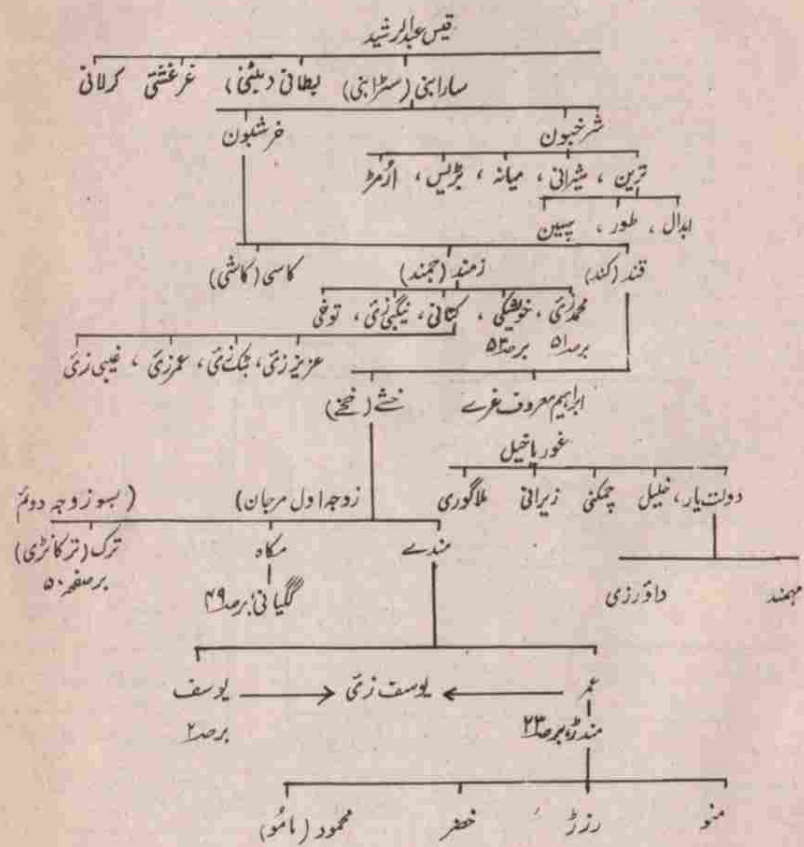 قیس عبدالرشید
سارابنی (سڑابنی) بطانی (بیٹنی)، غرغشتی کرلانی
شرخبون خرشبون
ترین، شیرانی، میانہ، بڑیس، اُرمڑ
ابدال، طور، سپین
قند (کند) زمند (جمند) کاسی (کاشی)
محمدزئی، خویشکی، کتانی، نیکبی زئی، توخی
برصہ ۵۱ برصہ ۵۳
عزیز زئی، ٹک زئی، عمرزئی، غیبی زئی
ابراہیم معروف غرے خشے (خخے)
غوریاخیل
دولت یار، خلیل چمکنی زیرانی ملاگوری
زوجہ اول مرجان) (بسو زوجہ دوئم
مندے مکاہ ترک (ترکانڑی)
گگیانی برصہ ۴۹ برصفحہ ۵۰
مہمند داؤدزی
عمر یوسف زئی یوسف
مندڑ برصہ ۲۳ برصہ ۲
منو رزڑ خضر محمود (مامُو)